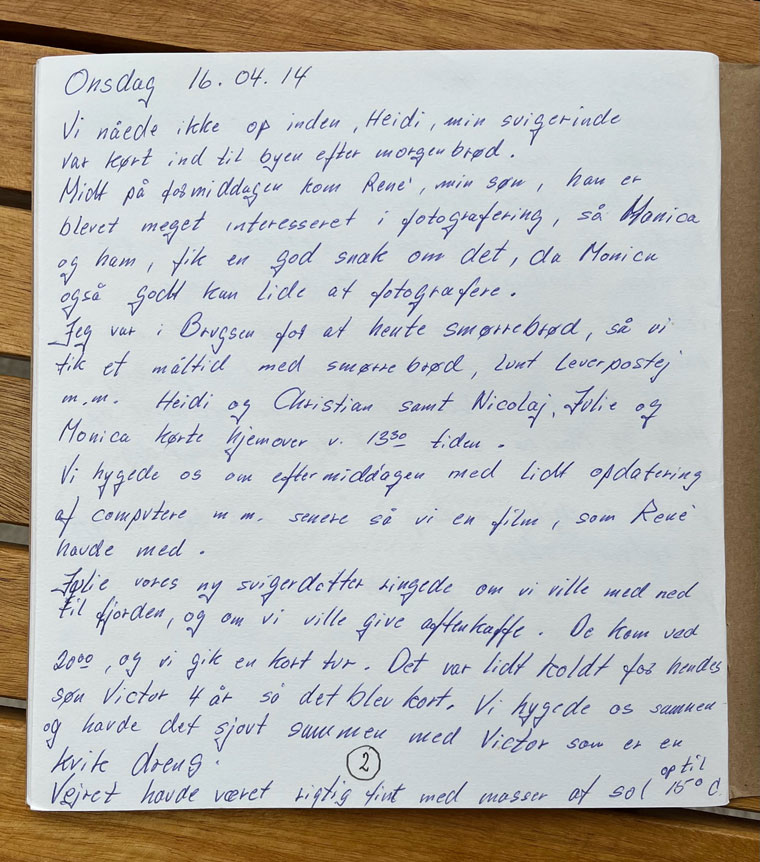 Onsdag 16.04.14
Vi nåede ikke op inden, Heidi, min svigerinde
var kørt ind til byen efter morgenbrød.
Midt på formiddagen kom René, min søn, han er
blevet meget interesseret i fotografering, så Monica
og ham, fik en god snak om det, da Monica
også godt kan lide at fotografere.
Jeg var i Brugsen for at hente smørrebrød, så vi
fik et måltid med smørrebrød, lunt leverpostej
m.m. Heidi og Christian samt Nicolaj, Julie og
Monica kørte hjemover v. 13³⁰ tiden.
Vi hygede os om eftermiddagen med lidt opdatering
af computere m.m. senere så vi en film, som René
havde med.
Julie vores ny svigerdatter ringede om vi ville med ned
til fjorden, og om vi ville give aftenkaffe. De kom ved
20⁰⁰, og vi gik en kort tur. Det var lidt koldt for hendes
søn Victor 4 år så det blev kort. Vi hygede os sammen
og havde det sjovt sammen med Victor som er en
kvik dreng.
2
Vejret havde været rigtig fint med masser af sol op til 15° C.